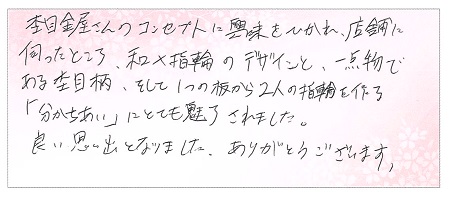 杢目金屋さんのコンセプトに興味をひかれ、店舗に
伺ったところ、和×指輪のデザインと、一点物で
ある杢目柄、そして1つの板から2人の指輪を作る
「分かちあい」にとても魅了されました。
良い思い出となりました。ありがとうございます。